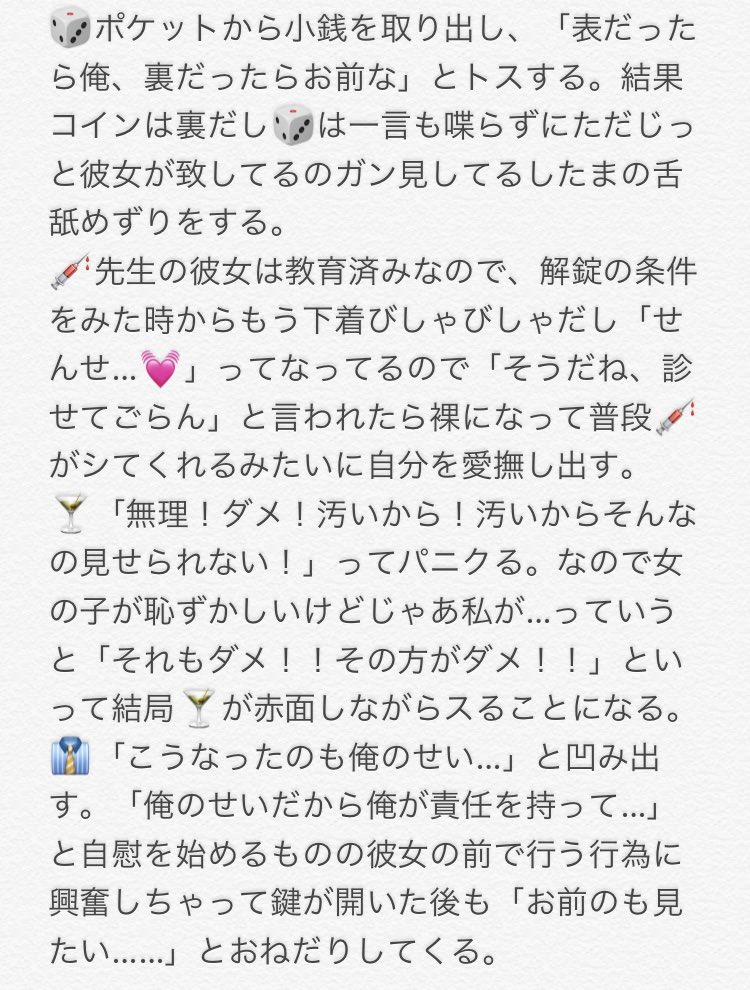 🎲ポケットから小銭を取り出し、「表だった
ら俺、裏だったらお前な」とトスする。結果
コインは裏だし🎲は一言も喋らずにただじっ
と彼女が致してるのガン見してるしたまの舌
舐めずりをする。
💉先生の彼女は教育済みなので、解錠の条件
をみた時からもう下着びしゃびしゃだし「せ
んせ…💓」ってなってるので「そうだね、診
せてごらん」と言われたら裸になって普段💉
がシてくれるみたいに自分を愛撫し出す。
🍸「無理！ダメ！汚いから！汚いからそんな
の見せられない！」ってパニクる。なので女
の子が恥ずかしいけどじゃあ私が…っていう
と「それもダメ！！その方がダメ！！」とい
って結局🍸が赤面しながらスることになる。
👔「こうなったのも俺のせい…」と凹み出
す。「俺のせいだから俺が責任を持って…」
と自慰を始めるものの彼女の前で行う行為に
興奮しちゃって鍵が開いた後も「お前のも見
たい……」とおねだりしてくる。